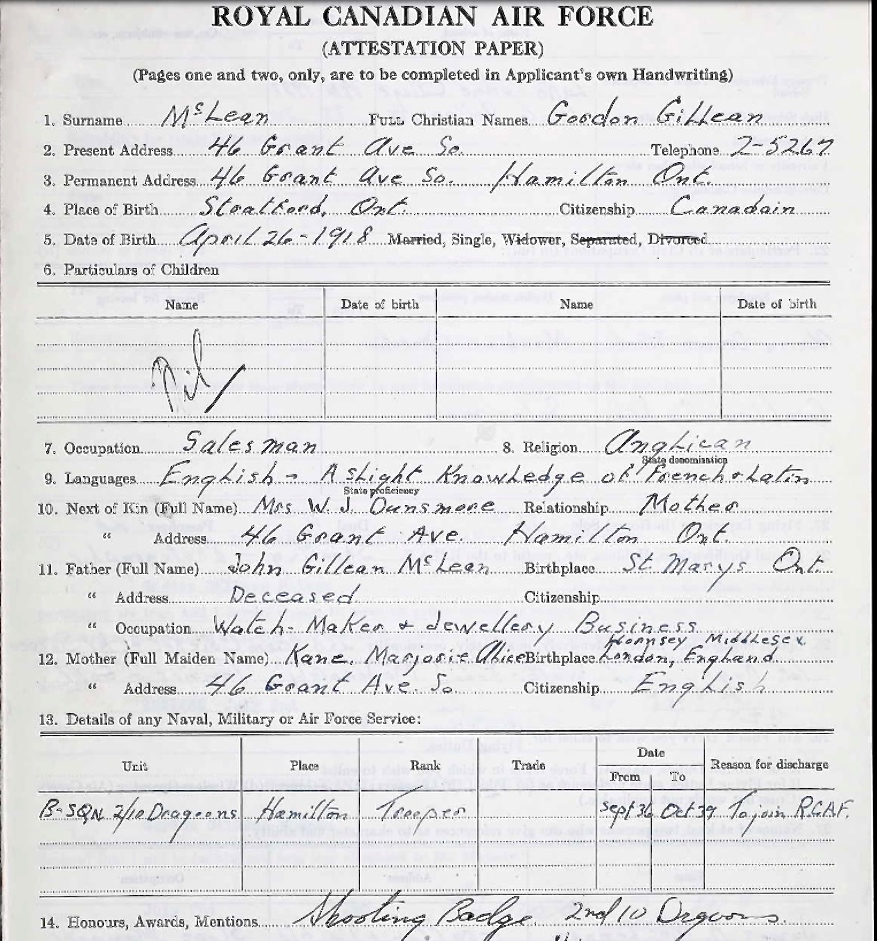 ROYAL CANADIAN AIR FORCE
(ATTESTATION PAPER)
(Pages one and two, only, are to be completed in Applicant's own Handwriting)
1. Surname McLean Full Christian Names Gordon Gillean
2. Present Address 46 Grant Ave So. Telephone 2-5267
3. Permanent Address 46 Grant Ave So. Hamilton Ont.
4. Place of Birth Stratford, Ont. Citizenship Canadain
5. Date of Birth April 26-1918 Married, Single, Widower, Separated, Divorced
6. Particulars of Children
Name Date of birth Name Date of birth
Nil
7. Occupation Salesman 8. Religion Anglican
State denomination
9. Languages English - A slight Knowledge of French & Latin
State proficiency
10. Next of Kin (Full Name) Mrs W. J. Dunsmore Relationship Mother
" Address 46 Grant Ave. Hamilton Ont
11. Father (Full Name) John Gillean McLean Birthplace St Marys Ont.
" Address Deceased Citizenship
" Occupation Watch-Maker & Jewellery Business
Hornsey Middlesex
12. Mother (Full Maiden Name) Kane, Marjorie Alice Birthplace London, England
" Address 46 Grant Ave. So Citizenship English
13. Details of any Naval, Military or Air Force Service:
Date
Unit Place Rank Trade From To Reason for discharge
B-SQN 2/10 Dragoons Hamilton Trooper Sept 36 Oct 39 To join R.C.A.F.
14. Honours, Awards, Mentions Shooting Badge 2nd 10 Dragoons